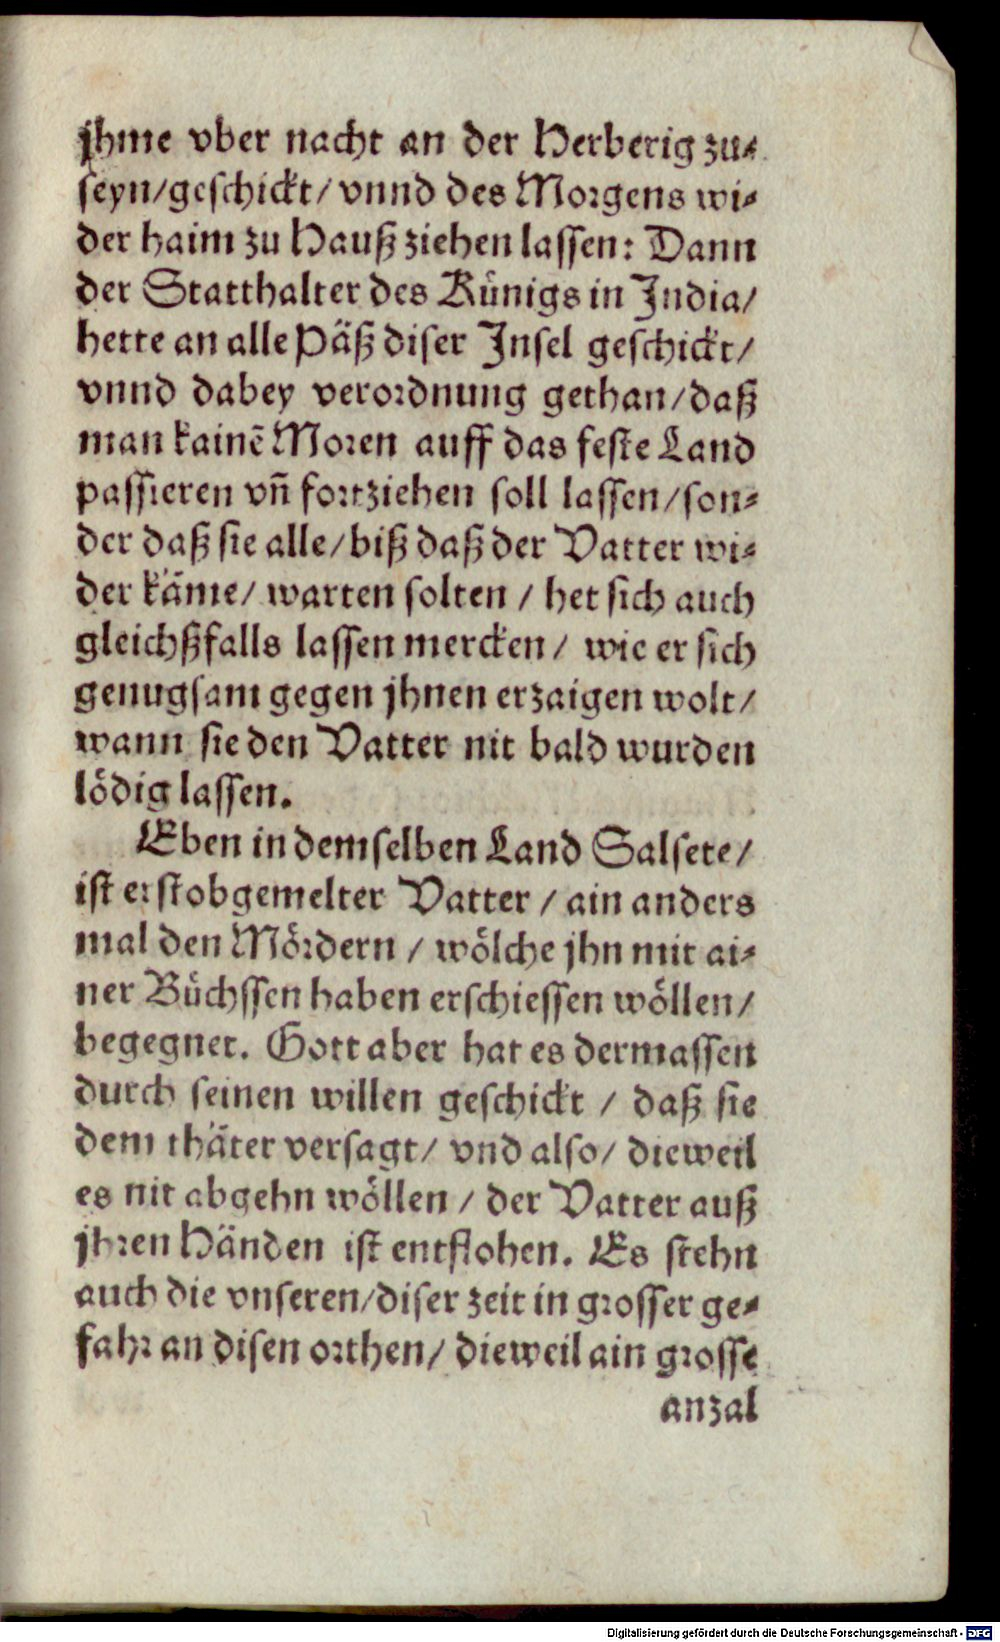 jhme vber nacht an der Herberig zu⸗
seyn/geschickt/ vnnd des Morgens wi⸗
der haim zu Hauß ziehen lassen: Dann
der Statthalter des Künigs in India/
hette an alle Päß diser Insel geschickt/
vnnd dabey verordnung gethan/daß
man kainẽ Moren auff das feste Land
passieren vñ fortziehen soll lassen/son⸗
der daß sie alle/biß daß der Vatter wi⸗
der käme/ warten solten / het sich auch
gleichßfalls lassen mercken/ wie er sich
genugsam gegen jhnen erzaigen wolt/
wann sie den Vatter nit bald wurden
lödig lassen.
Eben in demselben Land Salsete/
ist erstobgemelter Vatter / ain anders
mal den Mördern / wölche jhn mit ai⸗
ner Büchssen haben erschiessen wöllen/
begegnet. Gott aber hat es dermassen
durch seinen willen geschickt / daß sie
dem thäter versagt/ vnd also/ dieweil
es nit abgehn wöllen / der Vatter auß
jhren Händen ist entflohen. Es stehn
auch die vnseren/diser zeit in grosser ge⸗
fahr an disen orthen/ dieweil ain grosse
anzal
Digitalisierung gefördert durch die Deutsche Forschungsgemeinschaft - DFG